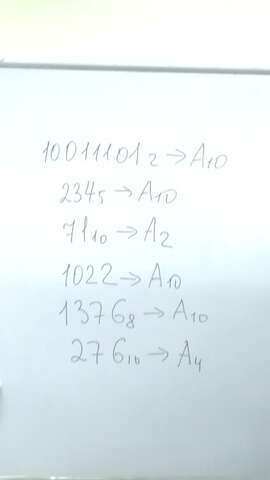 10011101₂→A₁₀
234₅→A₁₀
71₁₀→A₂
1022→A₁₀
1376₈→A₁₀
276₁₀→A₄